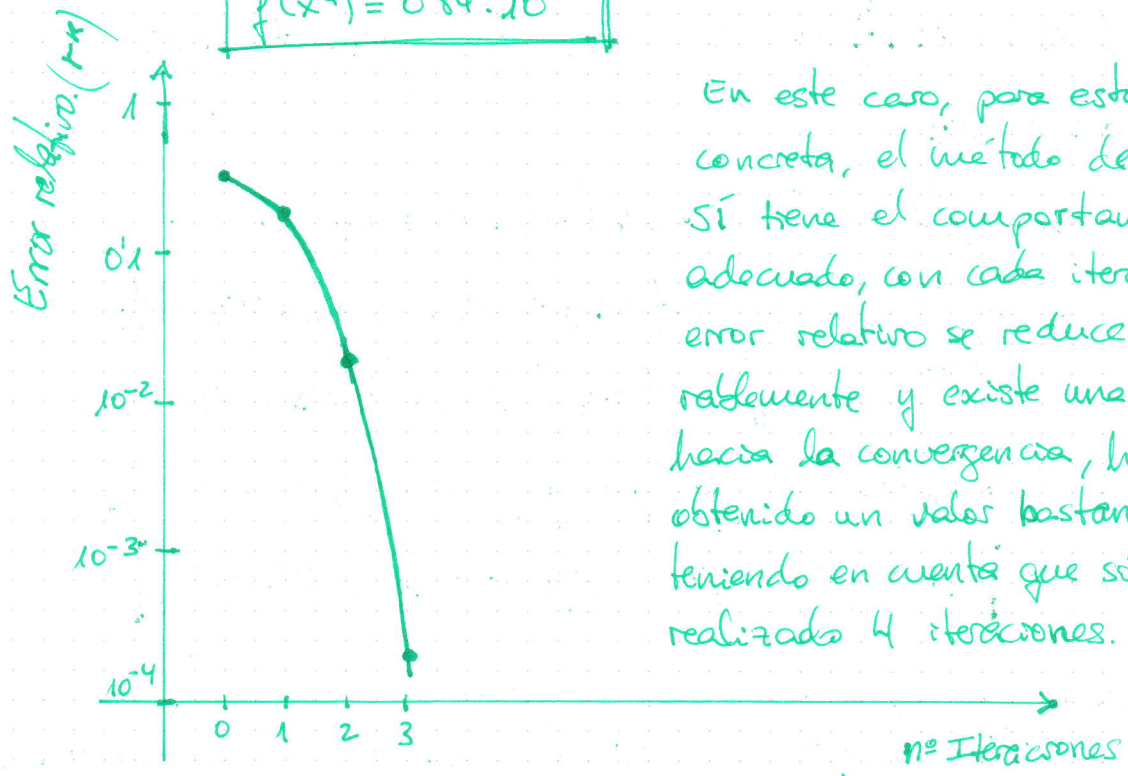 f(x⁴) = 0'84 · 10
Error relativo. (rᴷ)
1
0'1
10⁻²
10⁻³
10⁻⁴
0 1 2 3
nº Iteraciones
En este caso, para esta
concreta, el método de
sí tiene el comporta
adecuado, con cada iter
error relativo se reduce
rablemente y existe una
hacia la convergencia, h
obtenido un valor bastan
teniendo en cuenta que s
realizado 4 iteraciones.